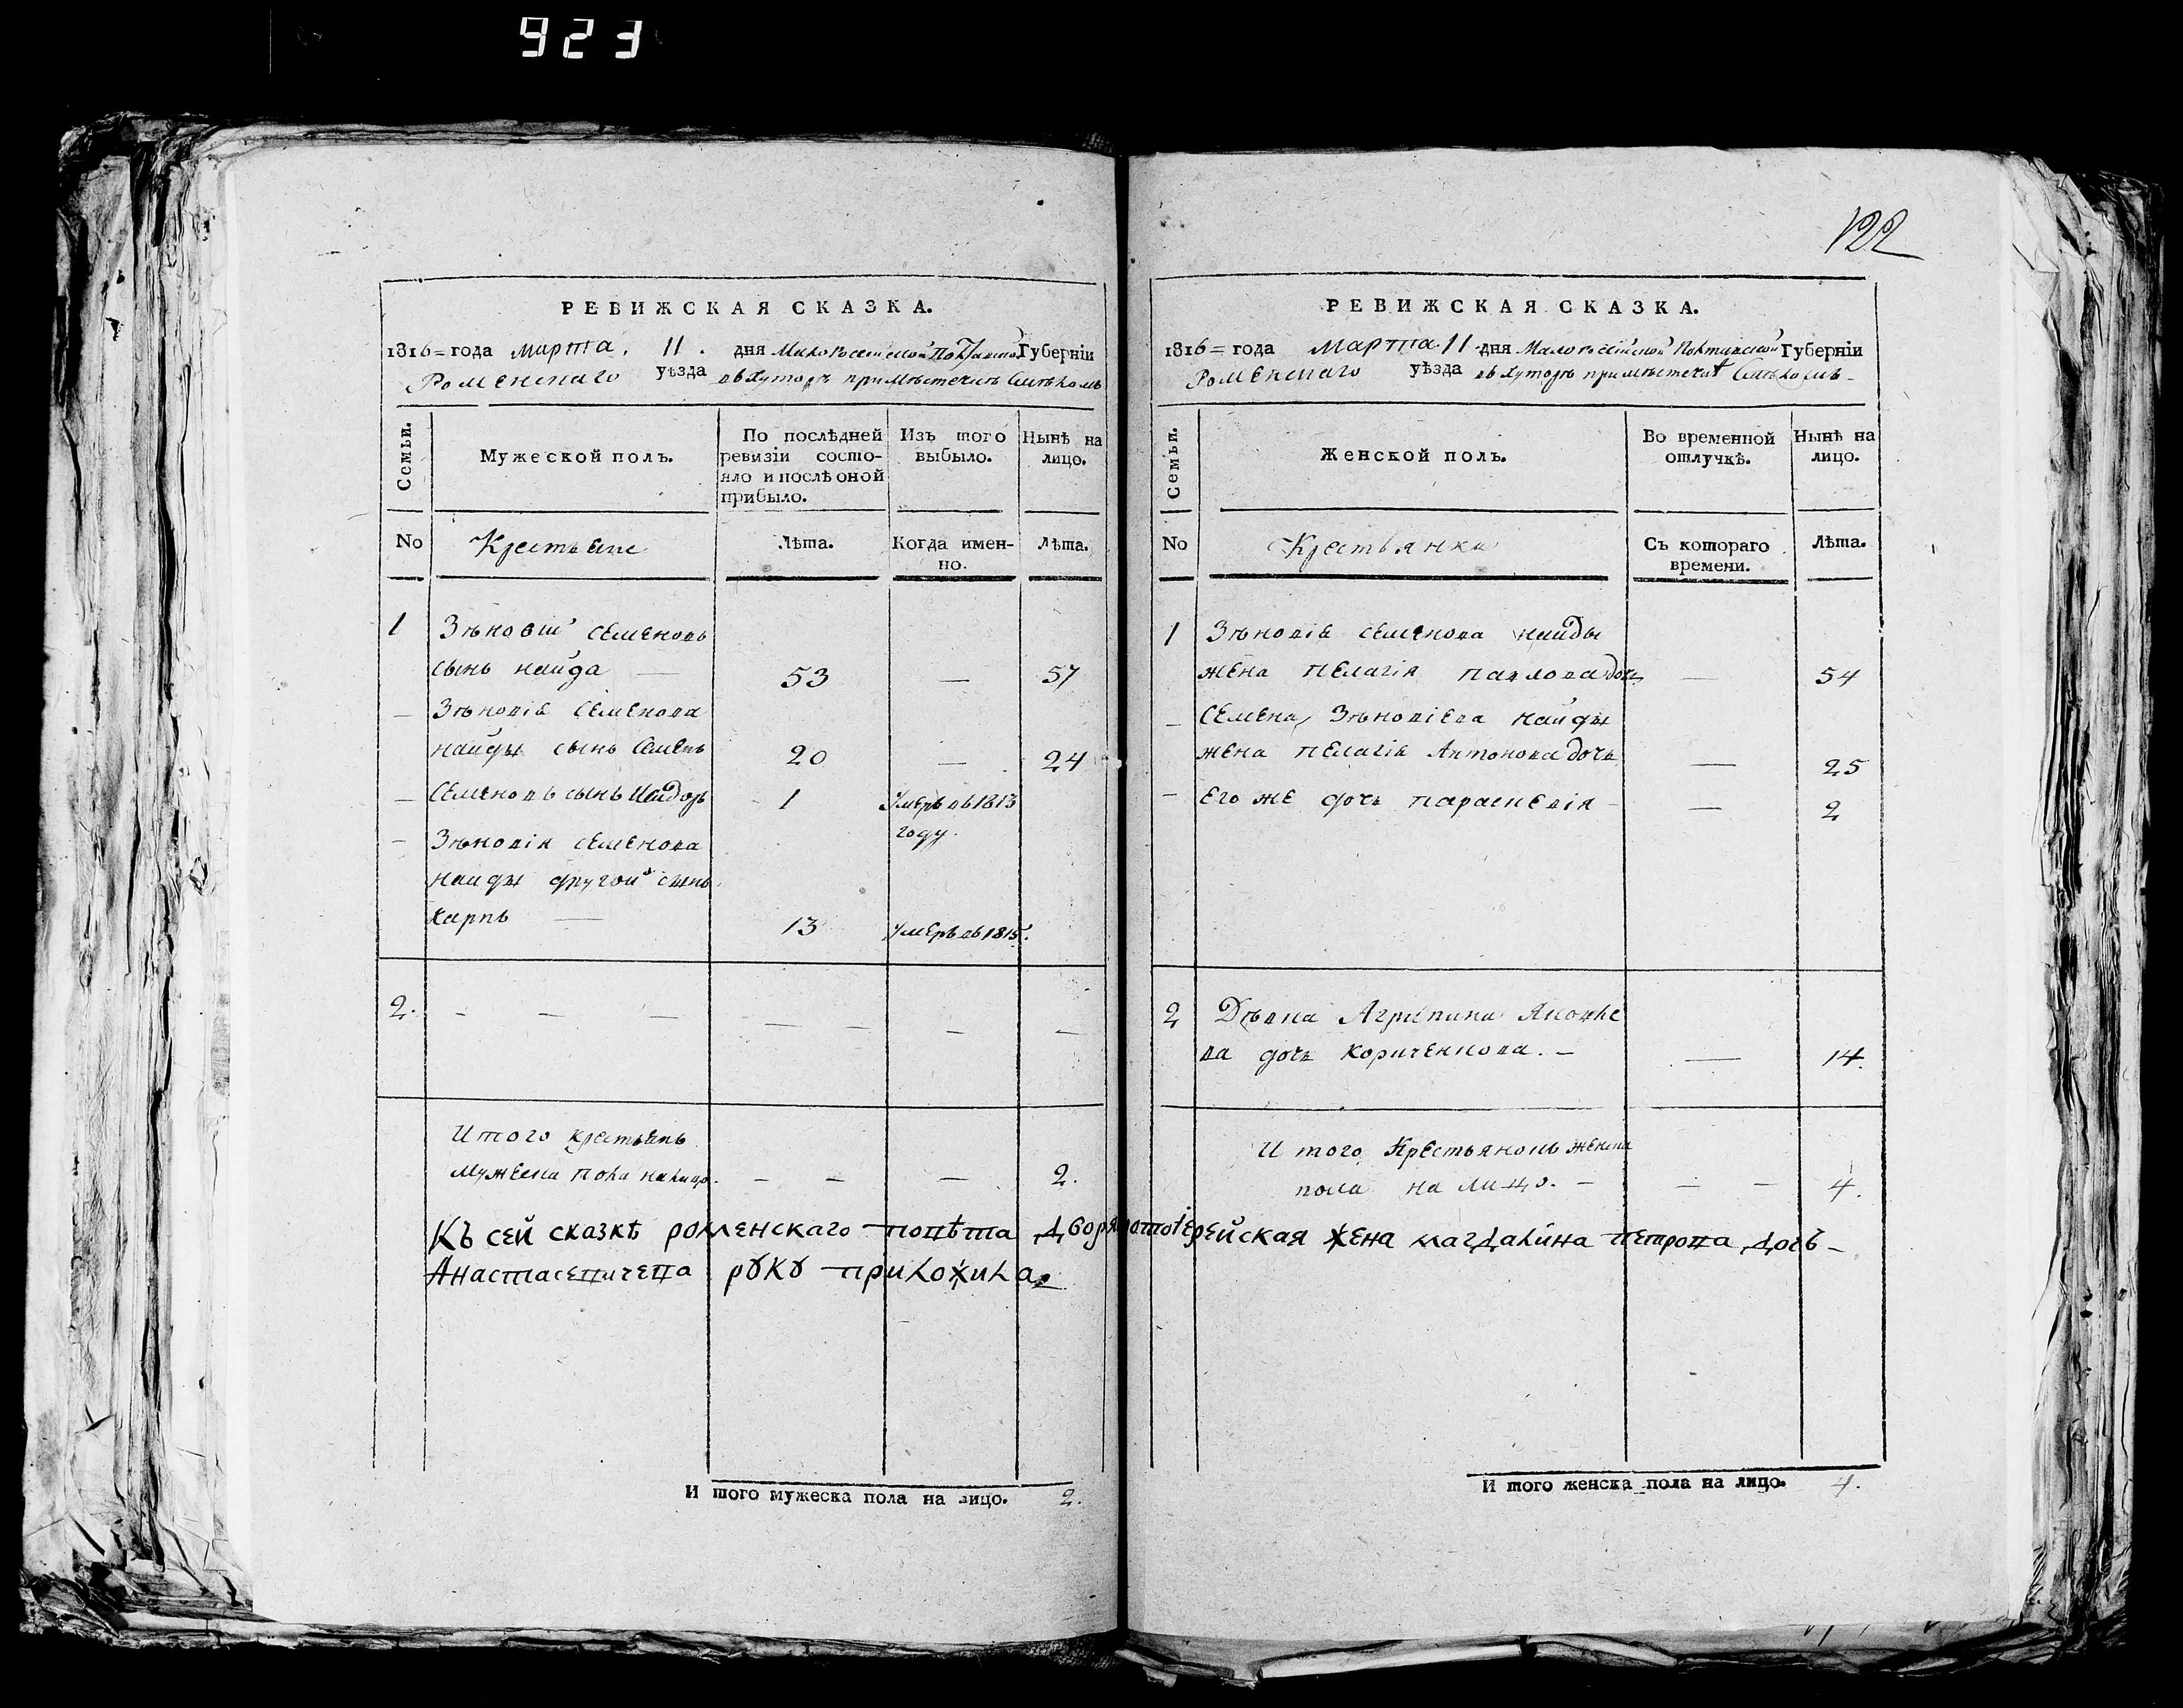 923
122
РЕВИЖСКАЯ СКАЗКА.
1816 = года марта. 11. дня Малоросейской Полтавской Губерніи
Роменскаго уѣзда въ Хуторѣ при мѣстечкѣ Смѣломъ
Семьи.
Мужеской полъ.
По послѣдней ревизіи состо-
яло и послѣ оной
прибыло.
Изъ того
выбыло.
Нынѣ на
лицо.
No
Крестьяне
Лѣта.
Когда имен-
но.
Лѣта.
1 Зѣновій Семеновъ
сынъ найда — 53 — 57
— Зѣновія Семенова
найды сынъ Семенъ 20 — 24
— Семеновъ сынъ Исидоръ 1 Умеръ въ 1813
году.
— Зѣновія Семенова
найды другой сынъ
Карпъ — 13 Умеръ въ 1815.
2. - — — — — — —
Итого крестьянъ
мужеска пола налицо. — — — 2.
РЕВИЖСКАЯ СКАЗКА.
1816 = года Марта. 11. дня Малоросейской Полтавской Губерніи
Роменскаго уѣзда въ Хуторѣ при мѣстечкѣ Смѣломъ —
Семьи.
Женской полъ.
Во временной
отлучкѣ.
Нынѣ на
лицо.
No
Крестьянки
Съ котораго
времени.
Лѣта.
1 Зѣновія Семенова найды
жена Пелагія Павлова дочь — 54
— Семена Зѣновіева найды
жена Пелагія Антонова дочь — 25
— Его же дочь Параскевія — 2
2 Дѣвка Агрипина
ва дочь Кориченкова. — — 14.
Итого Крестьянокъ женска
пола на лицо. — — — 4.
Къ сей сказкѣ роменскаго повѣта дворянотоіерейская жена магдалина петрова дочь —
Анастасевичева рꙋкꙋ приложила.
И того мужеска пола на лицо. 2.
И того женска пола на лицо. 4.